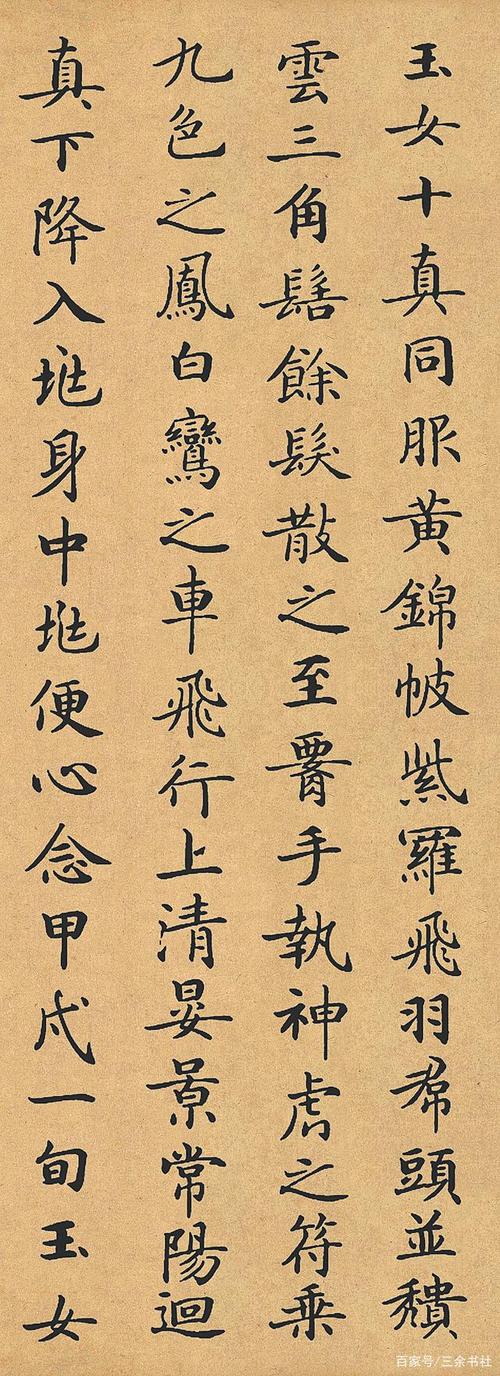 玉女十真同服黄錦帔紫羅飛羽帬頭並穨
雲三角髻餘髮散之至署手執神虎之符乗
九色之鳳白鸞之車飛行上清晏景常陽迴
真下降入某身中某便心念甲戌一旬玉女
百家号/三余书社